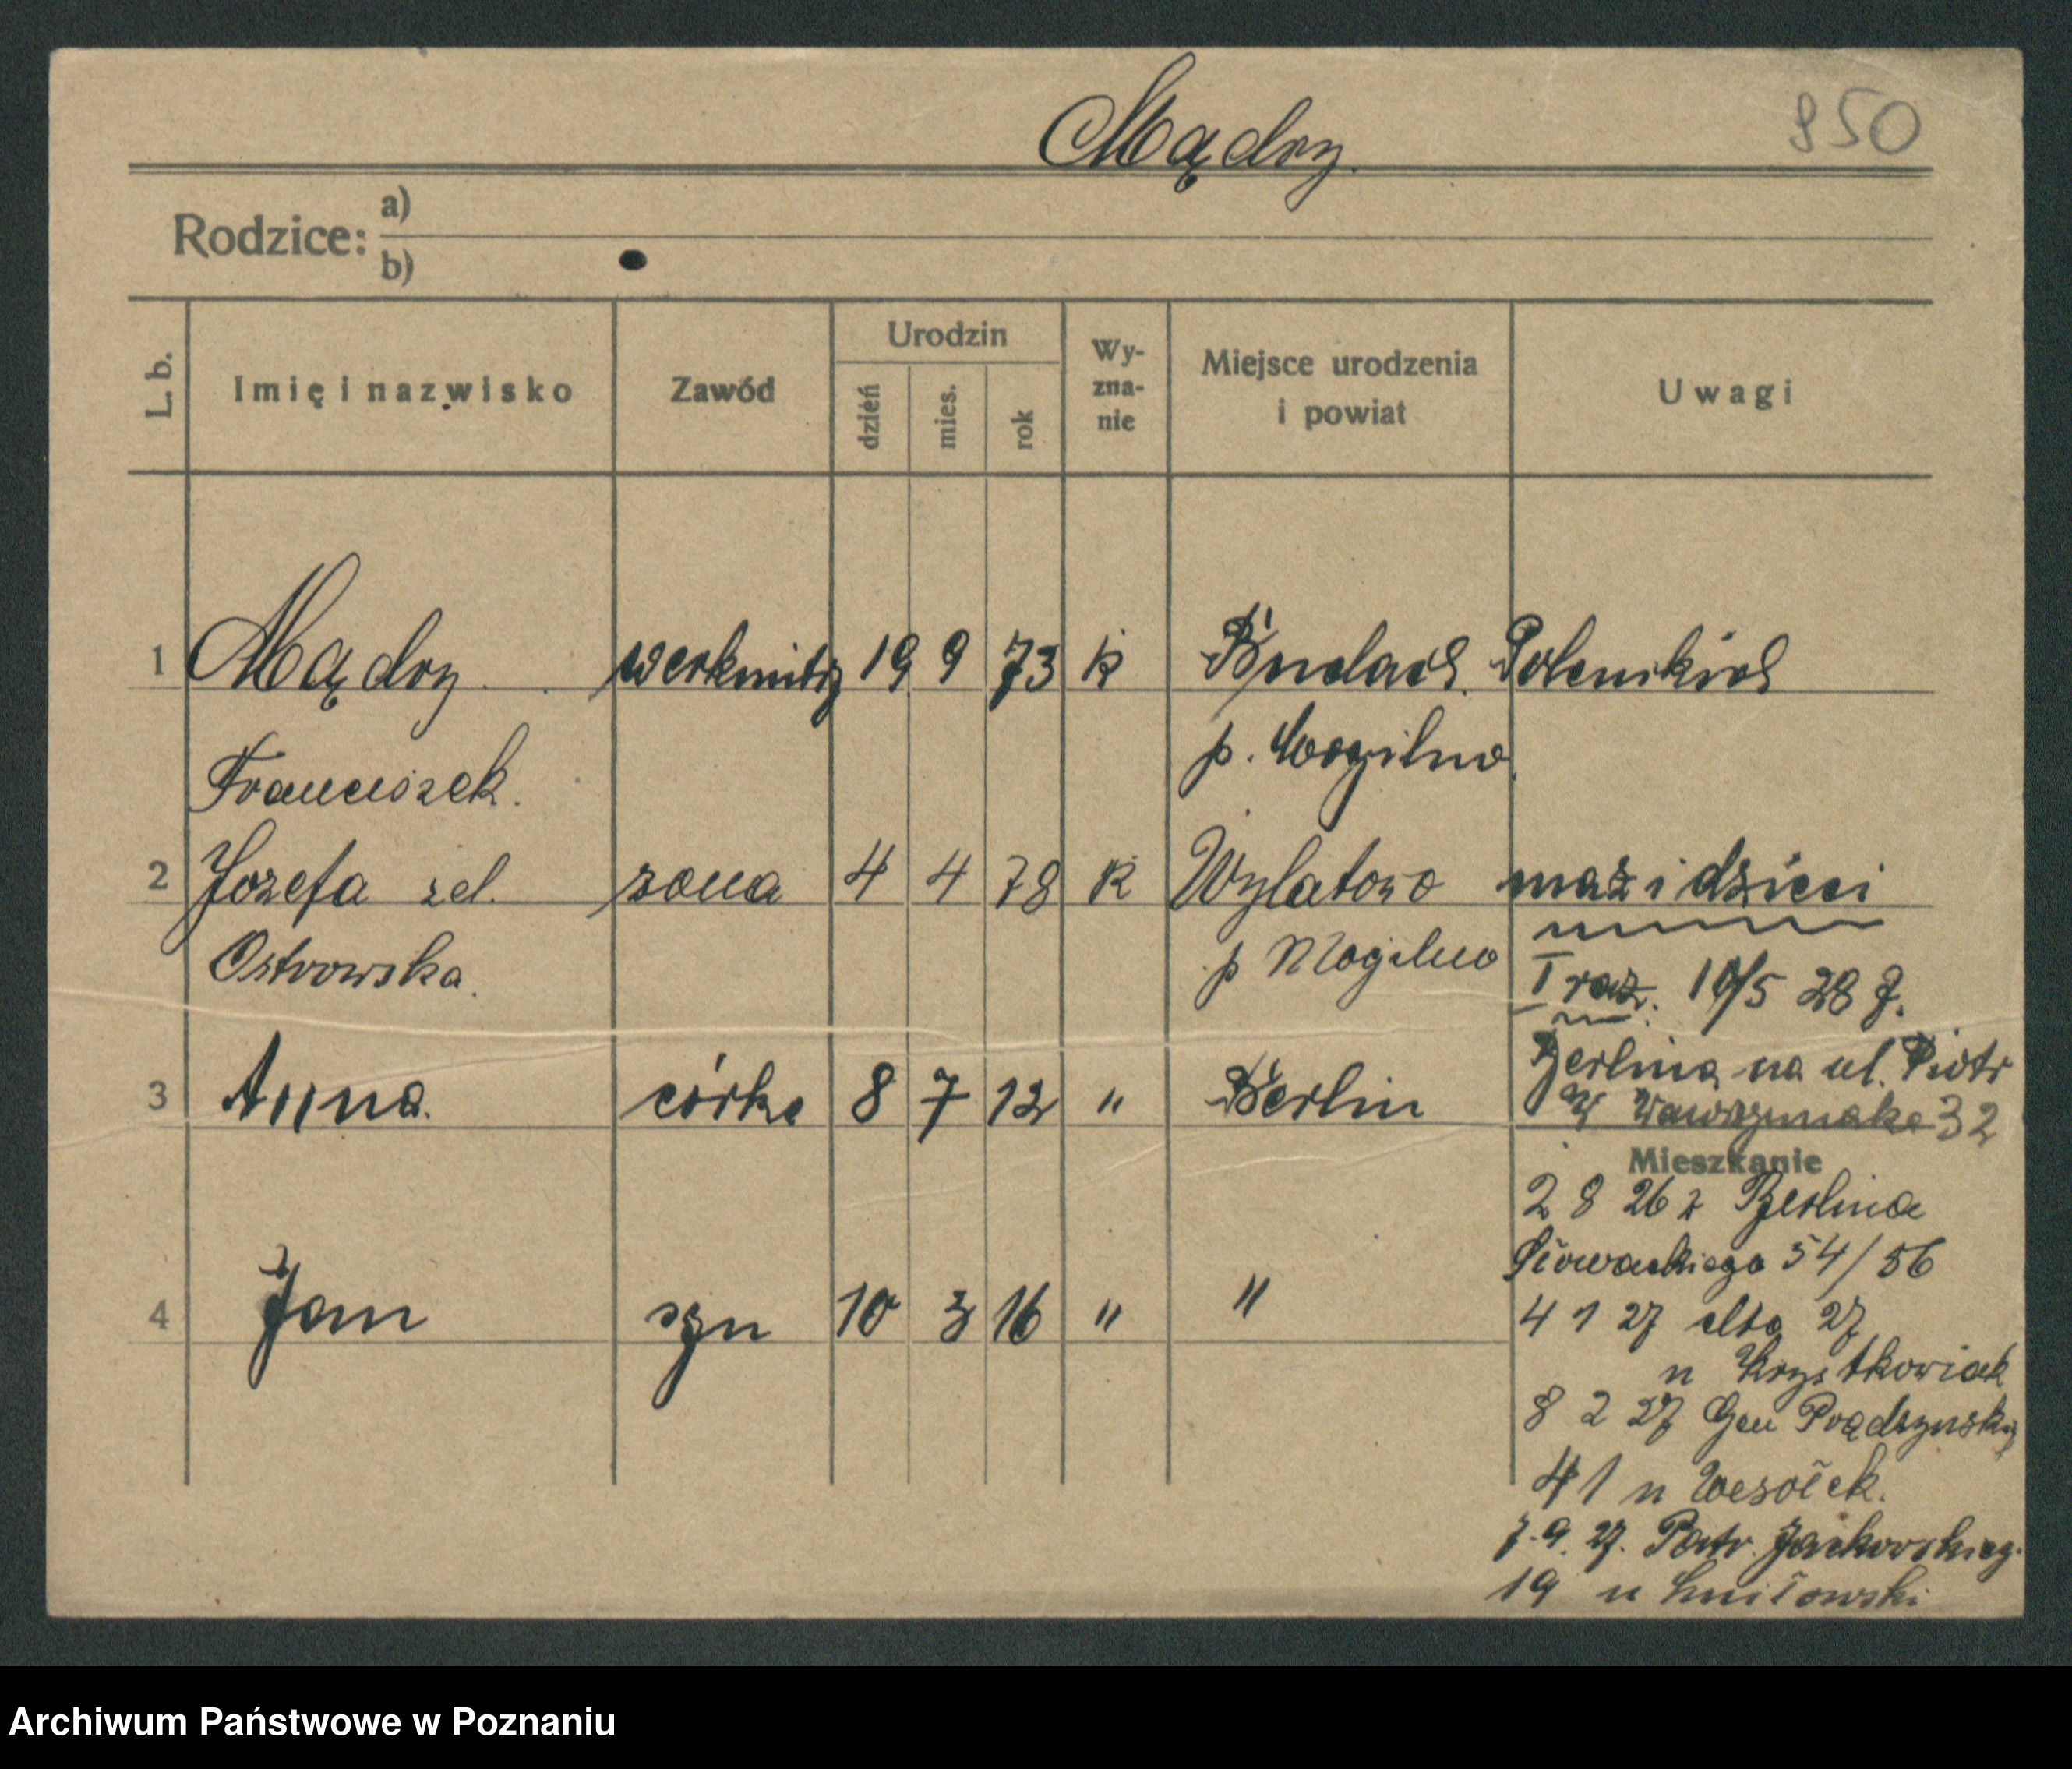 Mądry.
850
Rodzice: a)
b)
L. b.
Imię i nazwisko
Zawód
Urodzin
dzień
mies.
rok
Wy-
zna-
nie
Miejsce urodzenia
i powiat
Uwagi
1 Mądry werkmitrz 19 9 73 k
Franciszek.
p. Mogilno
2 Jozefa zel. zona 4 4 78 k Wylatowo mąż i dzieci
Ostrowska. p Mogilno
I raz. 28
3 Anna. córka 8 7 12 " Berlin
Berlina na ul. Piotr
Wawrzyniaka 32
Mieszkanie
2 8 26 z Berlina
Słowackiego 54/56
4 Jan syn 10 3 16 " "
4 1 27 27
u Krystkowiak
8 2 27 Gen Prądzyńskig
41 u Wesołek.
7.9.27. Patr. Jackowskieg.
19 u
Archiwum Państwowe w Poznaniu